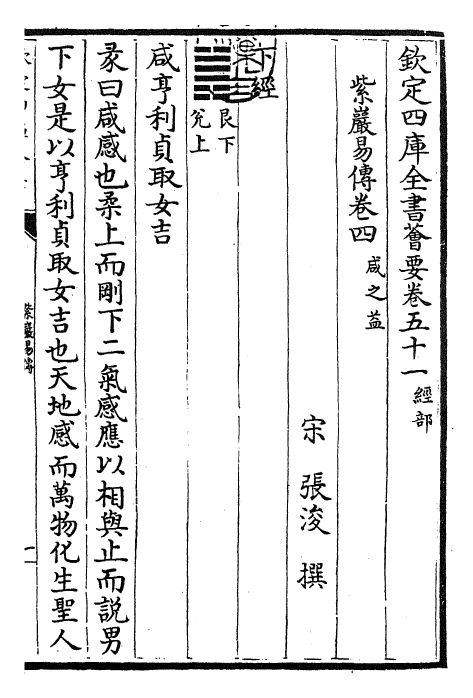 欽定四庫全書薈要卷五十一 經部
紫巖易傳卷四 咸之益
宋 張浚 撰
下經
艮下
兊上
咸亨利貞取女吉
彖曰咸感也柔上而剛下二氣感應以相與止而説男
下女是以亨利貞取女吉也天地感而萬物化生聖人
紫巖易傳
一